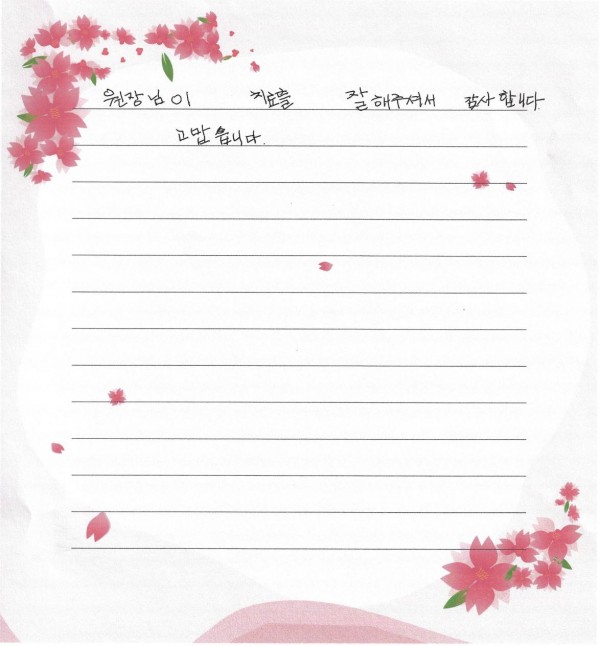 원장님이 치료를 잘해주셔서 감사합니다
고맙습니다.